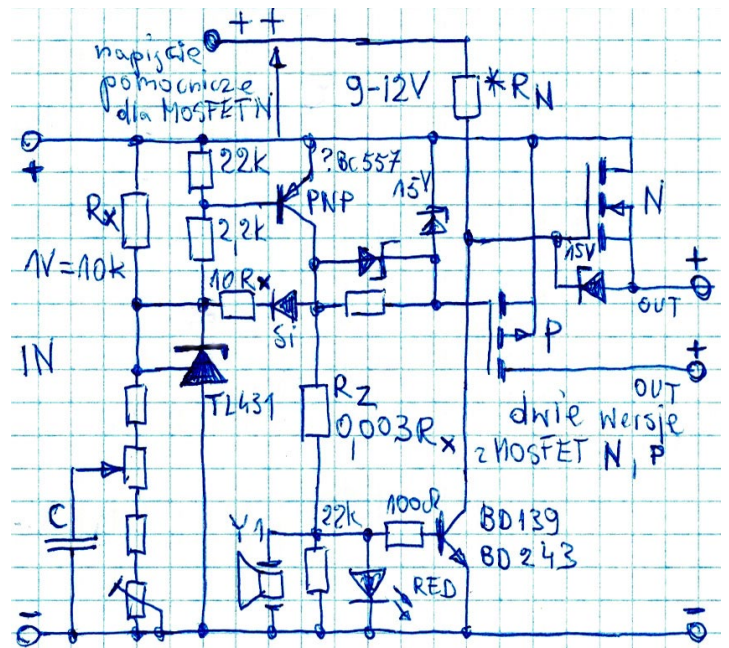 ++
napięcie
pomocnicze
dla MOSFET N
9-12V
*RN
+
22k
? BC557
PNP
15V
N
Rx
2,2k
1V=10k
10Rx
Si
15V
+
OUT
IN
TL431
P
+
OUT
RZ
0,003Rx
dwie wersje
z MOSFET N, P
C
Y1
22k
100Ω
BD139
BD243
RED
-
-